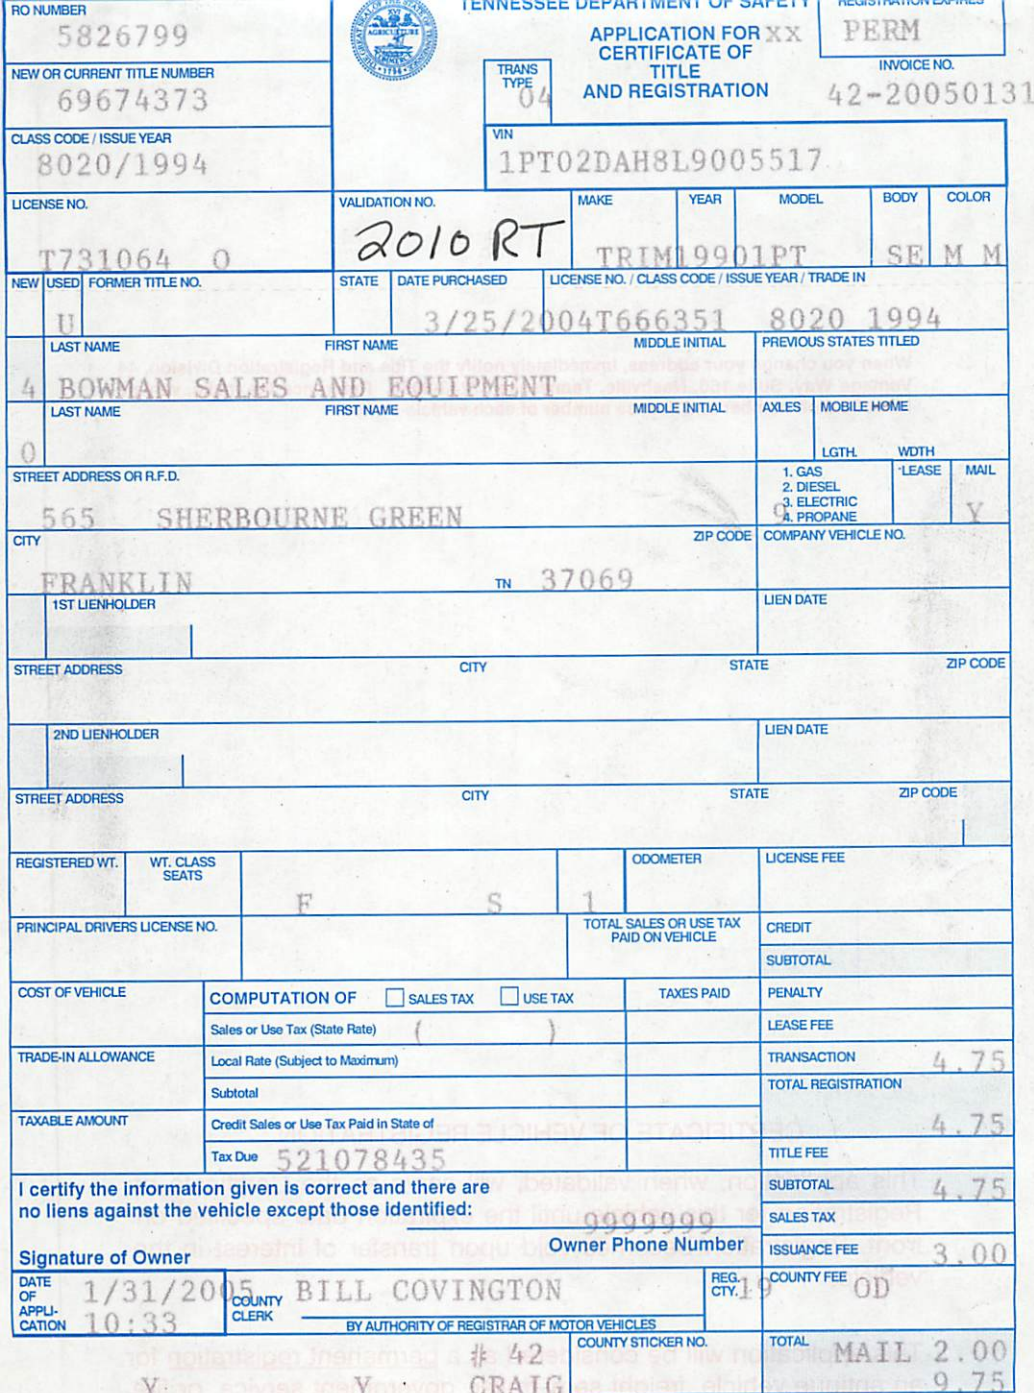 RO NUMBER
5826799
TENNESSEE DEPARTMENT OF SAFETY
REGISTRATION EXPIRES
PERM
APPLICATION FOR XX
CERTIFICATE OF
TITLE
AND REGISTRATION
AGRICULTURE
1796
NEW OR CURRENT TITLE NUMBER
69674373
TRANS
TYPE
04
INVOICE NO.
42-20050131
CLASS CODE / ISSUE YEAR
8020/1994
VIN
1PT02DAH8L9005517
LICENSE NO.
T731064 O
VALIDATION NO.
2010 RT
MAKE YEAR MODEL BODY COLOR
TRIM19901PT SE M M
NEW USED FORMER TITLE NO. STATE DATE PURCHASED LICENSE NO. / CLASS CODE / ISSUE YEAR / TRADE IN
U 3/25/2004T666351 8020 1994
LAST NAME FIRST NAME MIDDLE INITIAL PREVIOUS STATES TITLED
4 BOWMAN SALES AND EQUIPMENT
LAST NAME FIRST NAME MIDDLE INITIAL AXLES MOBILE HOME
0 LGTH. WDTH
STREET ADDRESS OR R.F.D.
565 SHERBOURNE GREEN
1. GAS
2. DIESEL
3. ELECTRIC
4. PROPANE
9
LEASE MAIL
Y
CITY ZIP CODE COMPANY VEHICLE NO.
FRANKLIN TN 37069
1ST LIENHOLDER LIEN DATE
STREET ADDRESS CITY STATE ZIP CODE
2ND LIENHOLDER LIEN DATE
STREET ADDRESS CITY STATE ZIP CODE
REGISTERED WT. WT. CLASS
SEATS
F S 1
ODOMETER LICENSE FEE
PRINCIPAL DRIVERS LICENSE NO.
TOTAL SALES OR USE TAX
PAID ON VEHICLE
CREDIT
SUBTOTAL
COST OF VEHICLE COMPUTATION OF SALES TAX USE TAX TAXES PAID PENALTY
Sales or Use Tax (State Rate) ( ) LEASE FEE
TRADE-IN ALLOWANCE Local Rate (Subject to Maximum) TRANSACTION 4.75
Subtotal TOTAL REGISTRATION
4.75
TAXABLE AMOUNT Credit Sales or Use Tax Paid in State of
Tax Due 521078435 TITLE FEE
I certify the information given is correct and there are
no liens against the vehicle except those identified:
SUBTOTAL 4.75
9999999 SALES TAX
Signature of Owner Owner Phone Number ISSUANCE FEE 3.00
DATE
OF
APPLI-
CATION
1/31/2005
10:33
COUNTY
CLERK
BILL COVINGTON
REG.
CTY.
19
COUNTY FEE OD
BY AUTHORITY OF REGISTRAR OF MOTOR VEHICLES
# 42 COUNTY STICKER NO. TOTAL MAIL 2.00
Y Y CRAIG 9.75